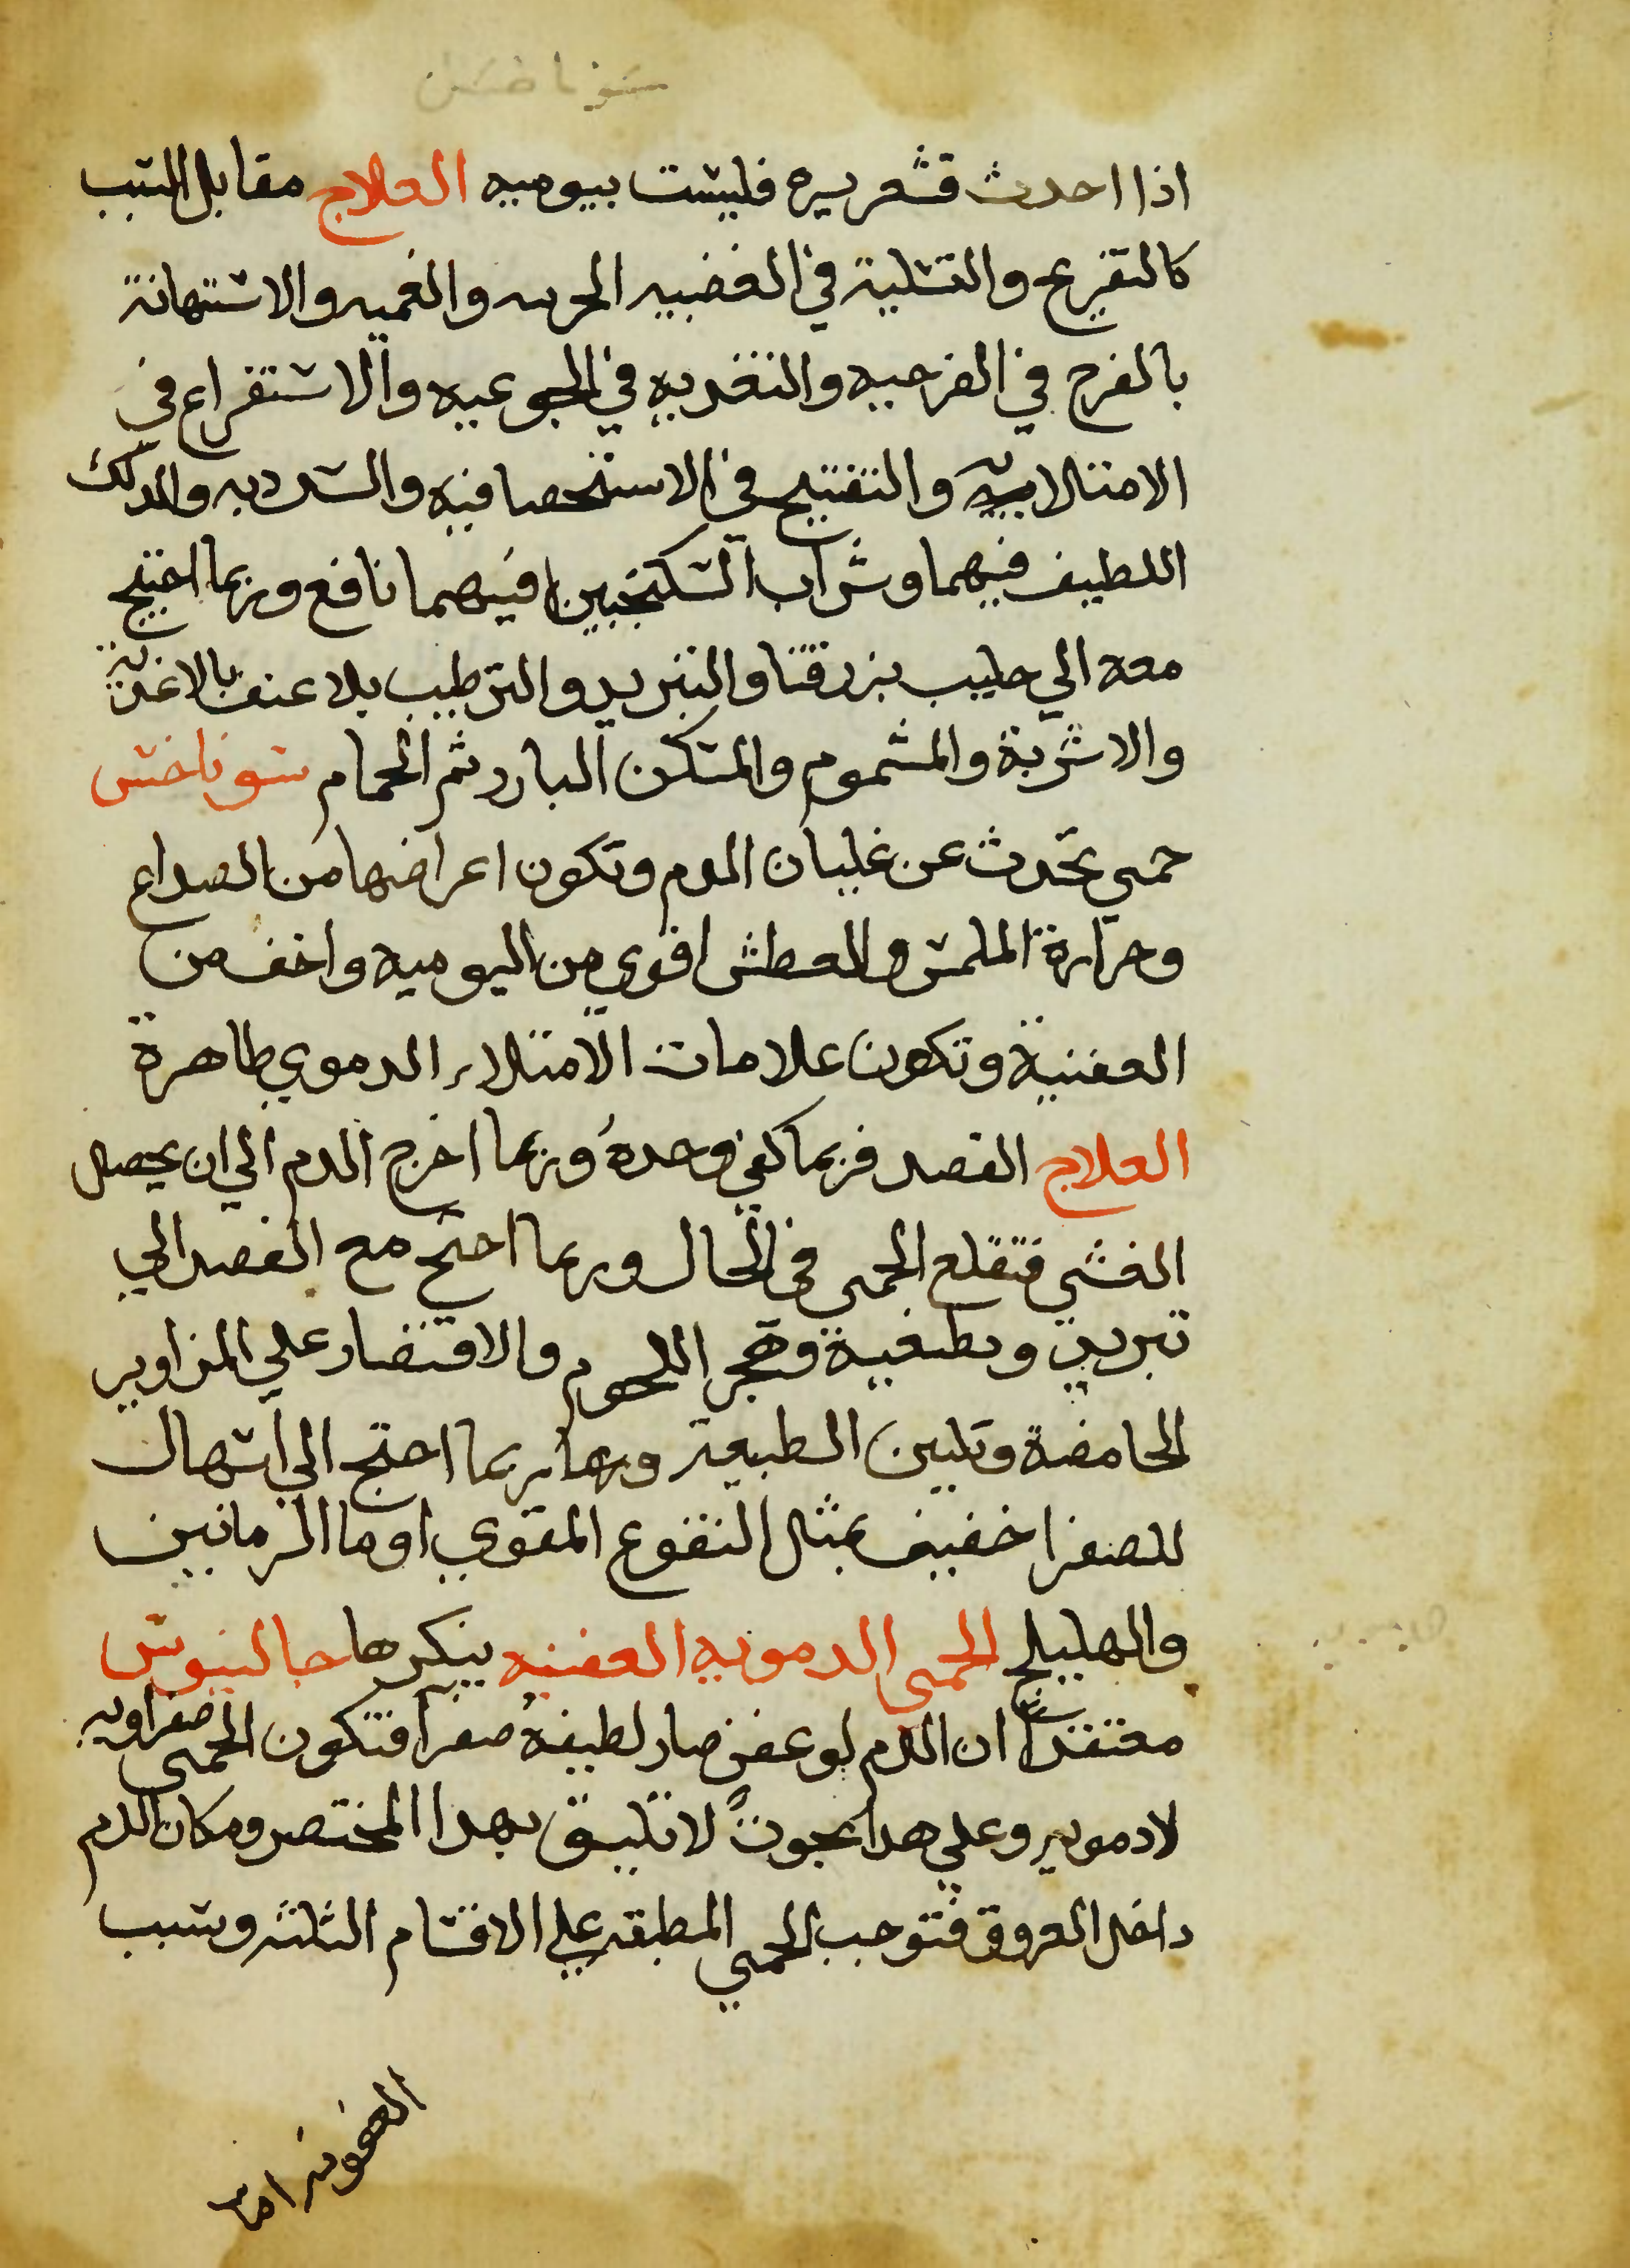 سوناخس
اذا احدث قشعريره فليست بيوميه العلاج مقابل السبب
كالتفريح والتسلية في الغضبيه والغميه والاستهانة
بالفرح في الفرحيه والتغديه في الجوعيه والاستفراع في
الامتلاييه والتفتيح في الاستحصافيه والسدديه والدلك
اللطيف فيهما وشراب السكنجبين فيهما نافع وربما احتيج
معه الي حليب بزر قثا والتبريد والترطيب بلا عنف بالاغذية
والاشربة والمشموم والمسكن البارد ثم الحمام سوناخس
حمى تحدث عن غليان الدم وتكون اعراضها من الصداع
وحرارة الملمس والعطش اقوي من اليوميه واخف من
العفنية وتكون علامات الامتلاء الدموي طاهرة
العلاج الفصد فربما كفي وحده وربما اخرج الدم الي ان يحصل
الغشي فتقلع الحمى في الحال وربما احتج مع الفصد الي
تبريد وتطفية وهجر اللحوم والاقتصار علي المزاوير
الحامضة وتليين الطبيعة وربما احتج الي اسهال
للصفرا خفيف بمثل النقوع المقوي او ما الرمانين
والهليلج الحمى الدمويه العفنيه ينكرها جالينوس
معتقدا ان الدم لو عفن صار لطيفه صفرا فتكون الحمى صفراويه
لا دمويه وعلي هدا بحوث لا تليق بهدا المختصر ومكان الدم
داخل العروق فتوجب الحمي المطبقه علي الاقسام الثلثة وسبب
العفونه اما